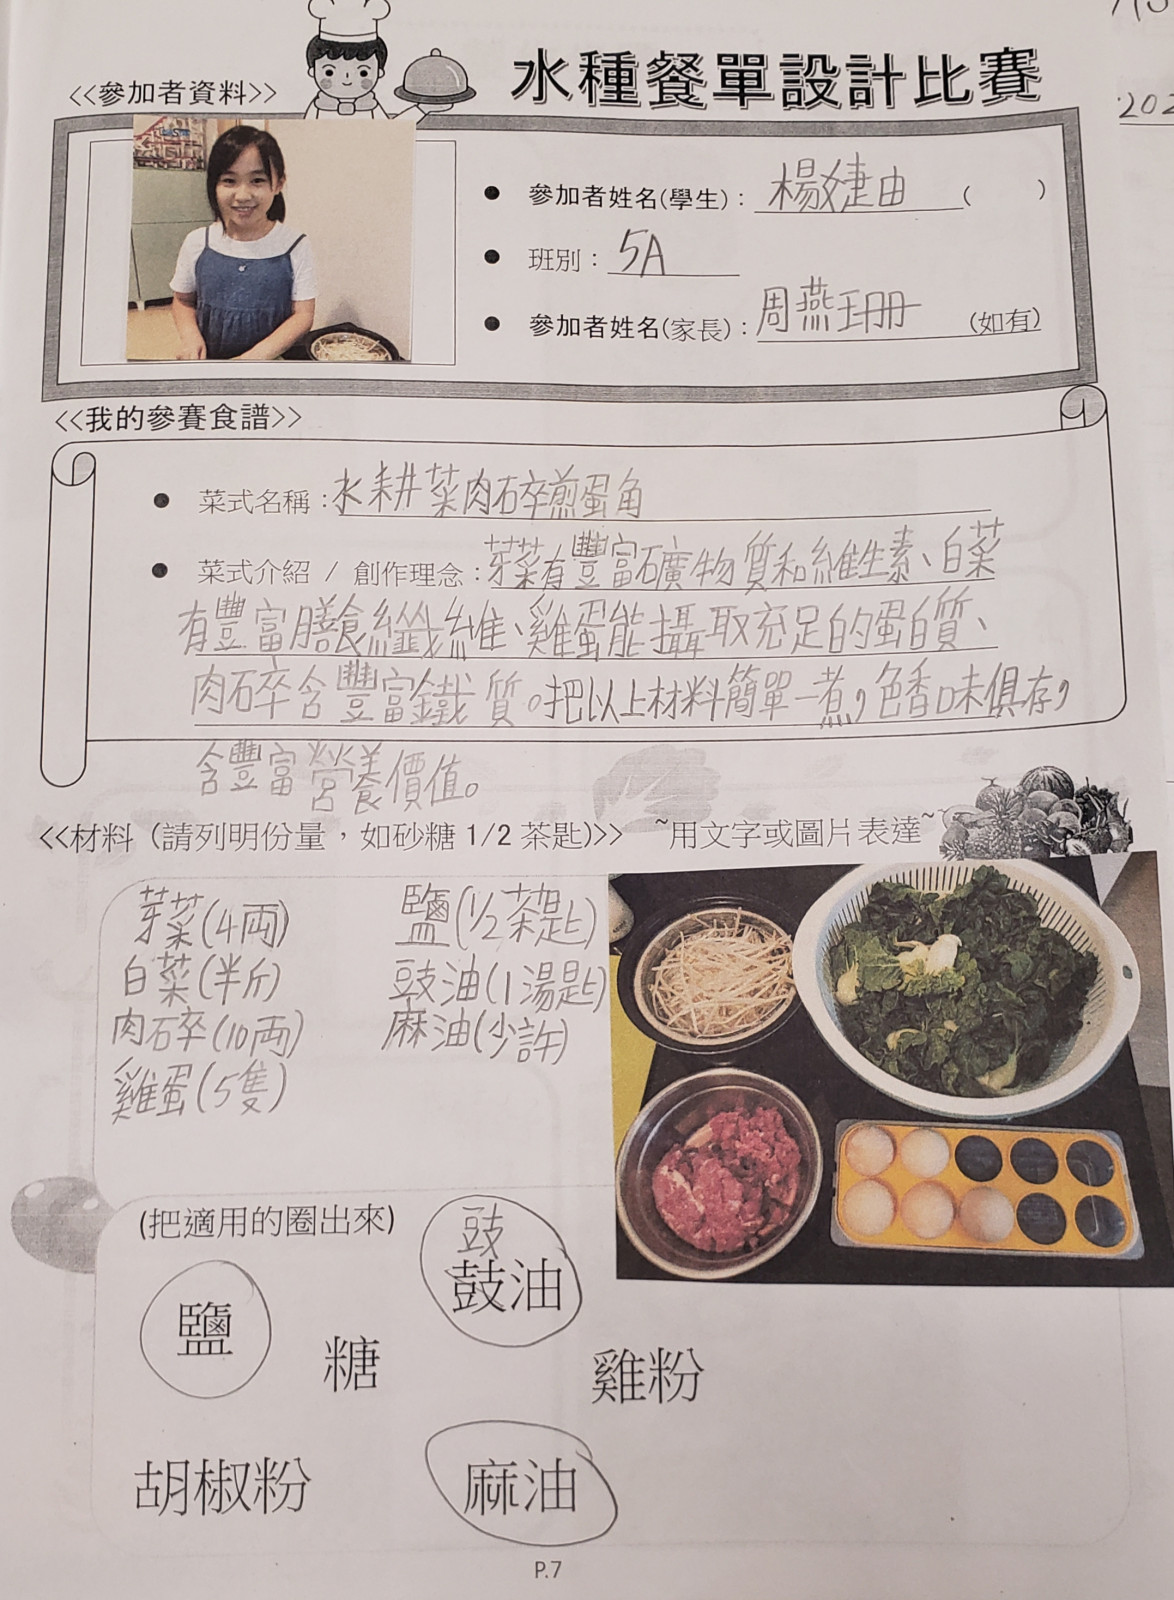 水種餐單設計比賽
<<參加者資料>>
202
參加者姓名(學生)：楊婕由 (　　)
班別：5A
參加者姓名(家長)：周燕珊 (如有)
<<我的參賽食譜>>
菜式名稱：水耕菜肉碎煎蛋角
菜式介紹 / 創作理念：芽菜有豐富礦物質和維生素、白菜
有豐富膳食纖維、雞蛋能攝取充足的蛋白質、
肉碎含豐富鐵質。把以上材料簡單一煮，色香味俱存，
含豐富營養價值。
<<材料（請列明份量，如砂糖 1/2 茶匙)>>　~用文字或圖片表達~
芽菜(4両)
白菜(半斤)
肉碎(10両)
雞蛋(5隻)
鹽(1/2茶匙)
豉油(1湯匙)
麻油(少許)
(把適用的圈出來)
豉
鼓油
鹽
糖
雞粉
胡椒粉
麻油
P.7